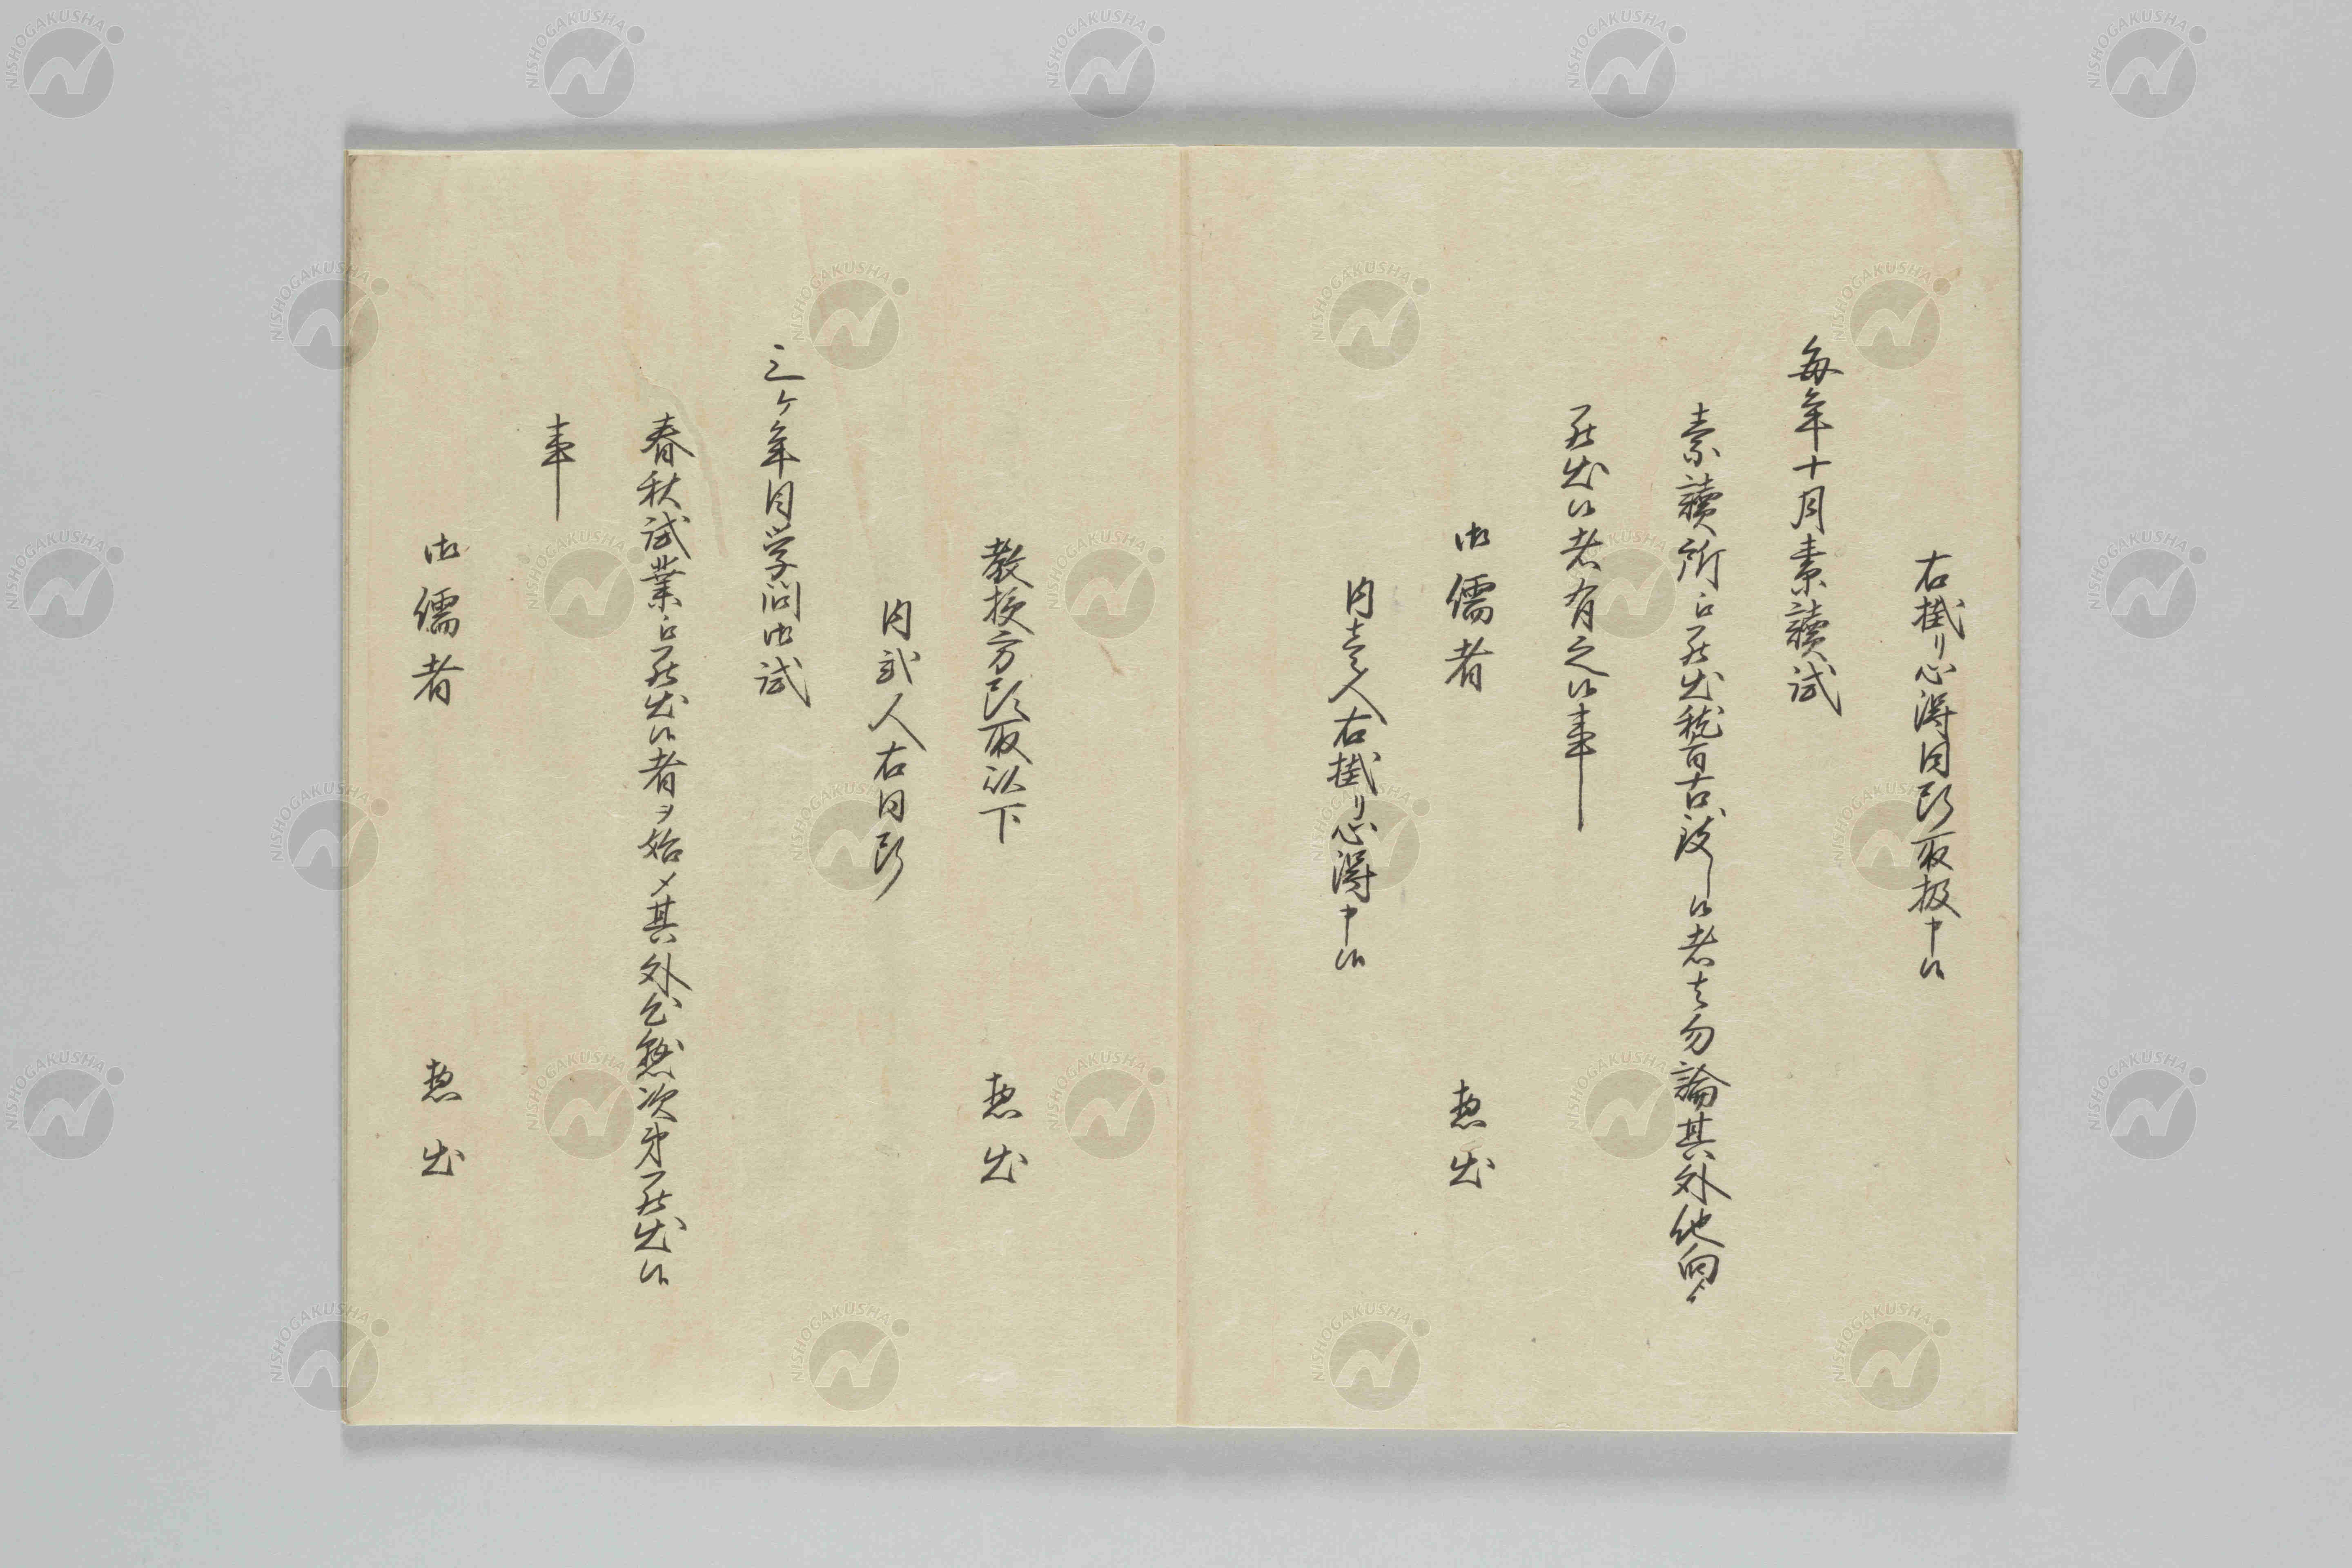 右掛リ心得同断取扱申候
毎年十月素讀試
素讀所ニ罷出稽古致し候者ハ勿論其外他向ゟ
罷出候者有之候事
御儒者 惣出
内壱人右掛リ心得申候
教授方出役取以下 惣出
内弐人右同断
三ヶ年目学問御試
春秋試業ニ罷出候者ヲ始メ其外無懸次第罷出候
事
御儒者 惣出
NISHOGAKUSHA